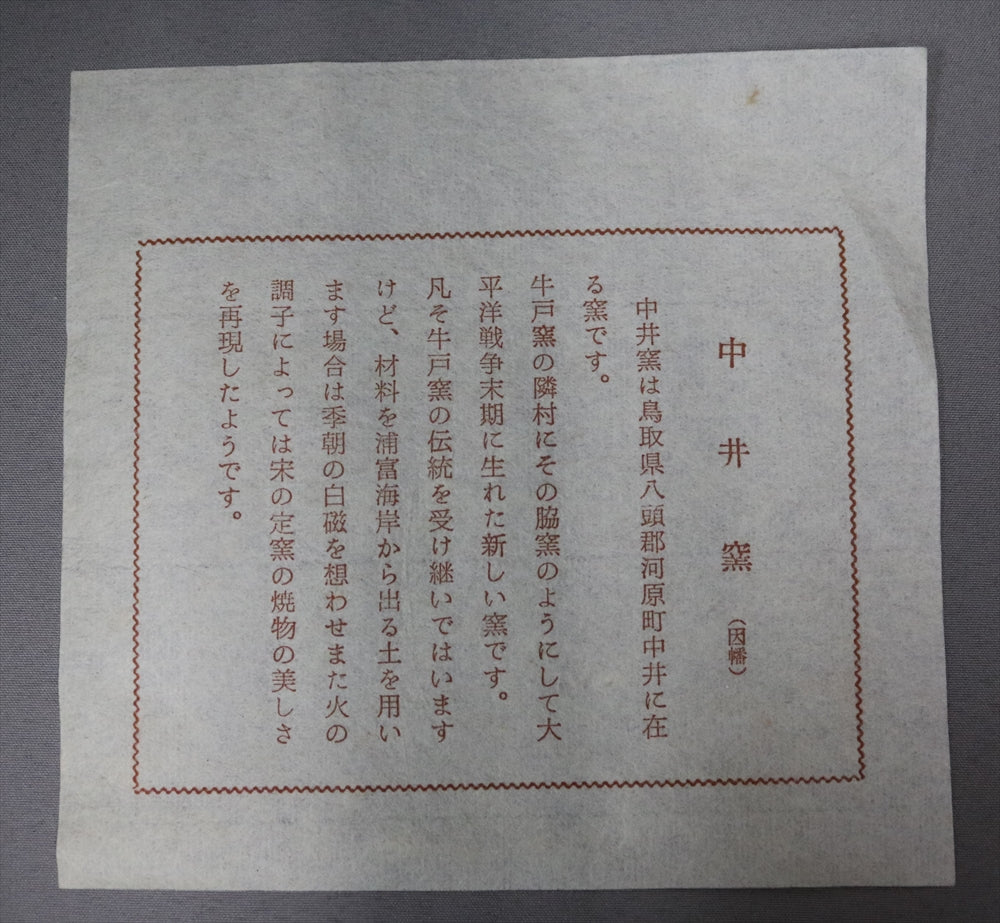 中井窯（因幡）
中井窯は鳥取県八頭郡河原町中井に在
る窯です。
牛戸窯の隣村にその脇窯のようにして大
平洋戦争末期に生れた新しい窯です。
凡そ牛戸窯の伝統を受け継いではいます
けど、材料を浦富海岸から出る土を用い
ます場合は季朝の白磁を想わせまた火の
調子によっては宋の定窯の焼物の美しさ
を再現したようです。